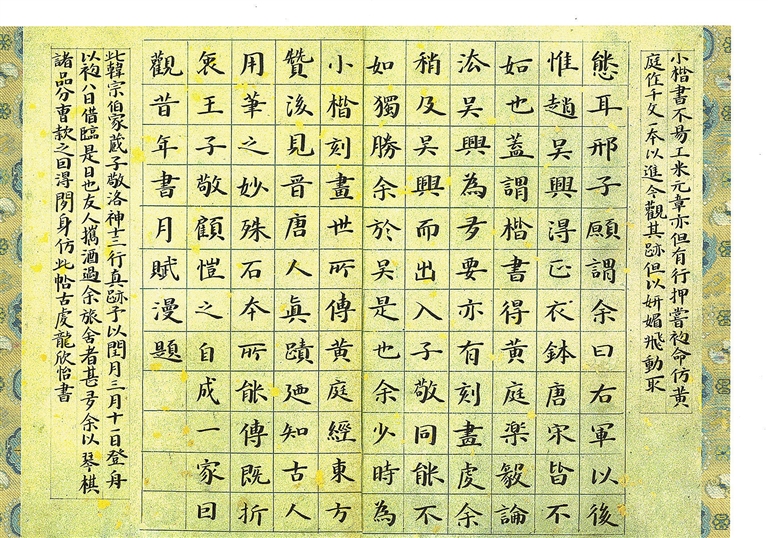 小楷書不易工米元章亦但有行押嘗初命仿黃
庭作千文一本以進今觀其跡但以妍媚飛動取
態耳邢子願謂余曰右軍以後
惟趙吳興得正衣鉢唐宋皆不
如也蓋謂楷書得黃庭樂毅論
法吳興為多要亦有刻畫處余
稍及吳興而出入子敬同能不
如獨勝余於吳是也余少時為
小楷刻畫世所傳黃庭經東方
贊後見晉唐人眞蹟廼知古人
用筆之妙殊石本所能傳既折
衷王子敬顧愷之自成一家曰
觀昔年書月賦漫題
此韓宗伯家藏子敬洛神十三行真跡予以閏月三月十一日登舟
以初八日借臨是日也友人攜酒過余旅舍者甚多余以琴棋
諸品分曹款之曰得閒身仿此帖古虔龍欣怡書